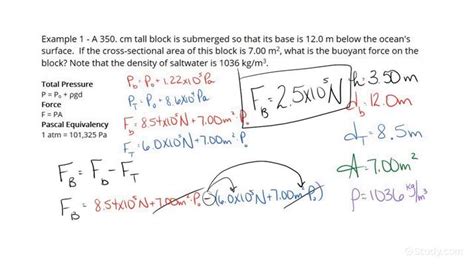 Example 1 - A 350. cm tall block is submerged so that its base is 12.0 m below the ocean's
surface. If the cross-sectional area of this block is 7.00 m², what is the buoyant force on the
block? Note that the density of saltwater is 1036 kg/m³.
Total Pressure
P = P₀ + ρgd
Force
F = PA
Pascal Equivalency
1 atm = 101,325 Pa
P_b = P₀ + 1.22x10⁵ Pa
P_T = P₀ + 8.6x10⁴ Pa
F_b = 8.54x10⁵N + 7.00m² P₀
F_T = 6.0x10⁵N + 7.00m² P₀
F_B = 2.5x10⁵ N
h = 3.50m
d_b = 12.0m
d_T = 8.5m
A = 7.00m²
ρ = 1036 kg/m³
F_B = F_b - F_T
F_B = 8.54x10⁵N + 7.00m² P₀ - (6.0x10⁵N + 7.00m² P₀)
Study.com